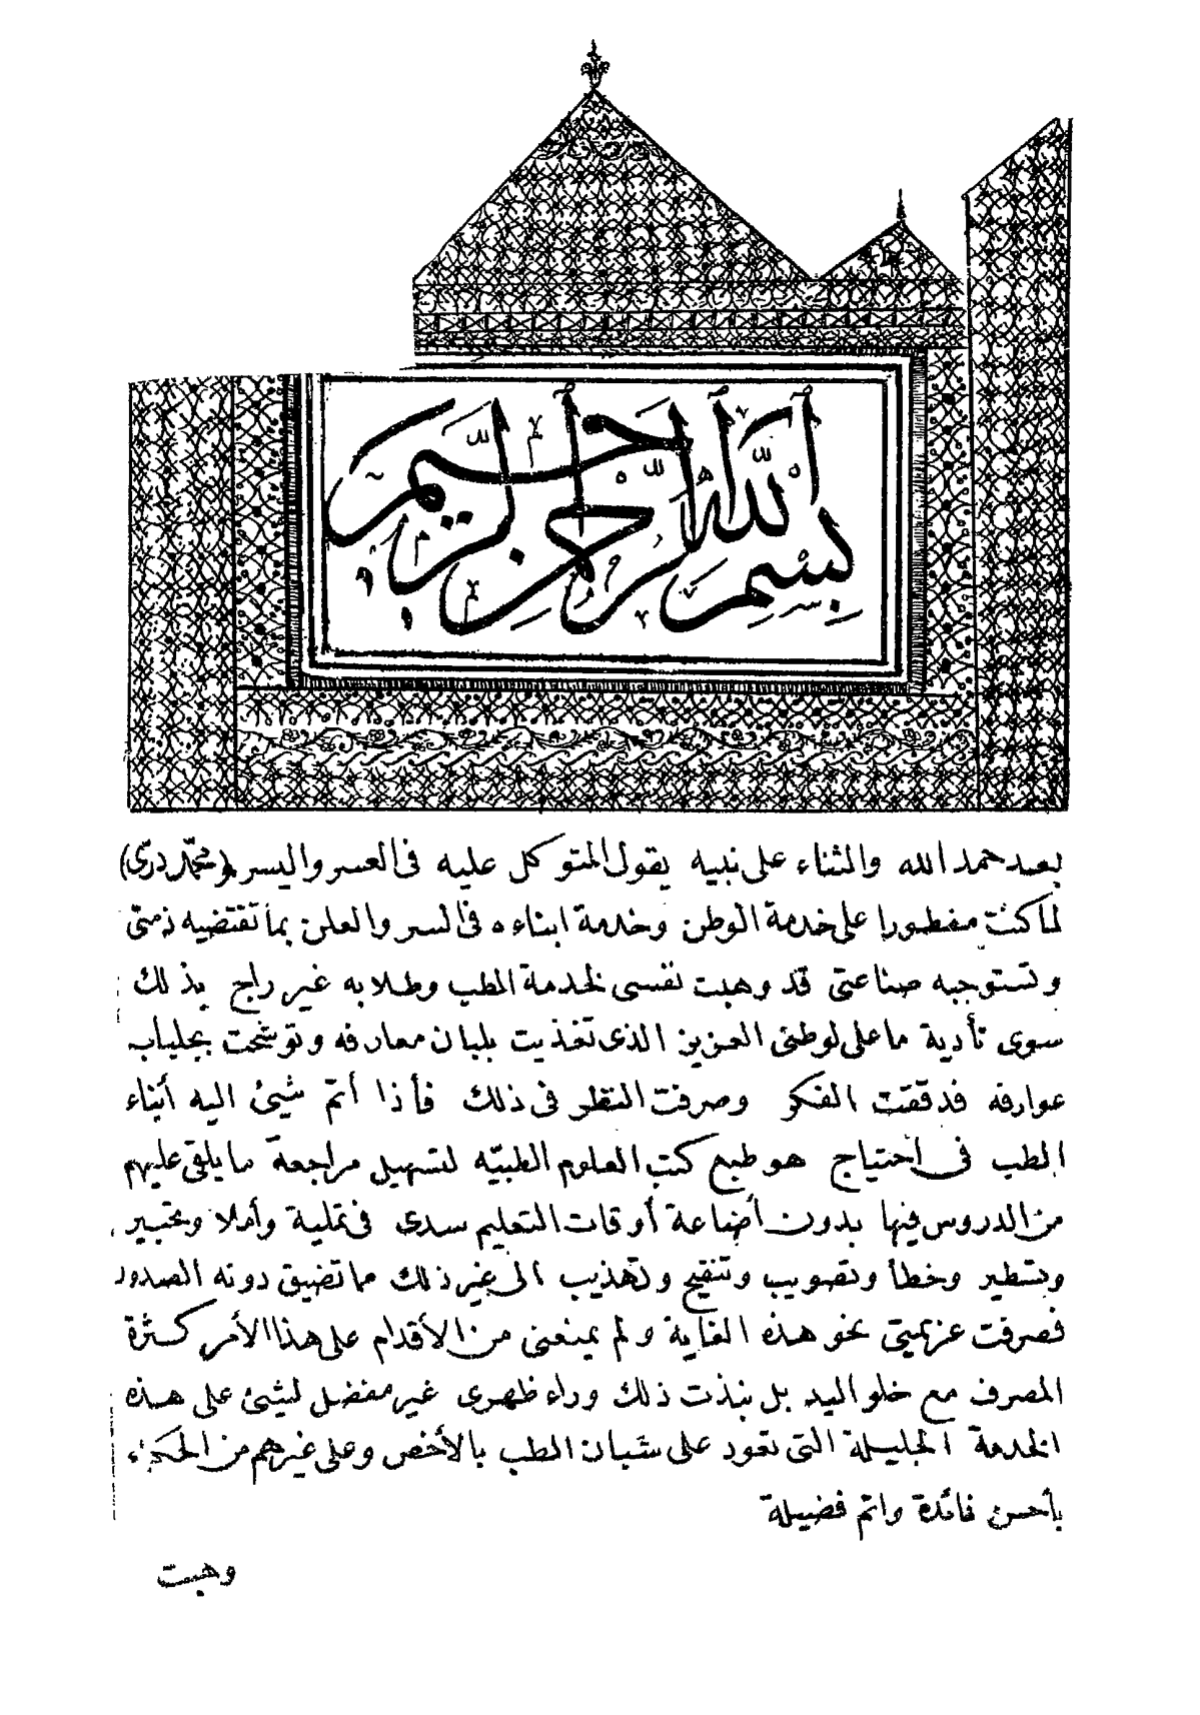 بسم الله الرحمن الرحيم
بعد حمد الله والثناء على نبيه يقول المتوكل عليه في العسر واليسر (محمد درى)
لما كنت مفطورا على خدمة الوطن وخدمة ابناءه فى السر والعلن بما تقتضيه ذمتى
وتستوجبه صناعتى قد وهبت نفسى لخدمة الطب وطلابه غير راج بذلك
سوى تأدية ما على لوطنى العزيز الذى تغذيت بلبان معارفه وتوشحت بجلباب
عوارفه فدققت الفكر وصرفت النظر فى ذلك فأذا أتم شيئ اليه أبناء
الطب فى احتياج هو طبع كتب العلوم الطبيّه لتسهيل مراجعة ما يلقى عليهم
من الدروس فيها بدون أضاعة أوقات التعليم سدى فى تملية وأملا وتحبير
وتسطير وخطأ وتصويب وتنقيح وتهذيب الى غير ذلك مما تضيق دونه الصدور
فصرفت عزيمتى نحو هذه الغاية ولم يمنعنى من الأقدام على هذا الأمر كثرة
المصرف مع خلو اليد بل نبذت ذلك وراء ظهرى غير مفضل لشيئ على هذه
الخدمة الجليلة التى تعود على شبان الطب بالأخص وعلى غيرهم من الحكماء
بأحسن فائدة واتم فضيلة
وهبت